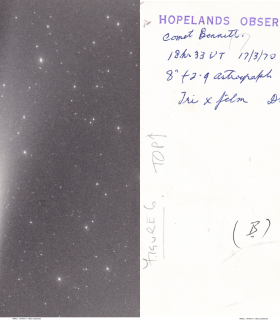 HOPELANDS OBSER
Comet Bennett.
18hr 33 UT 17/3/70
8" f2.9 astrograph
Tri x film D
FIGURE 6 TOP↑
(B)